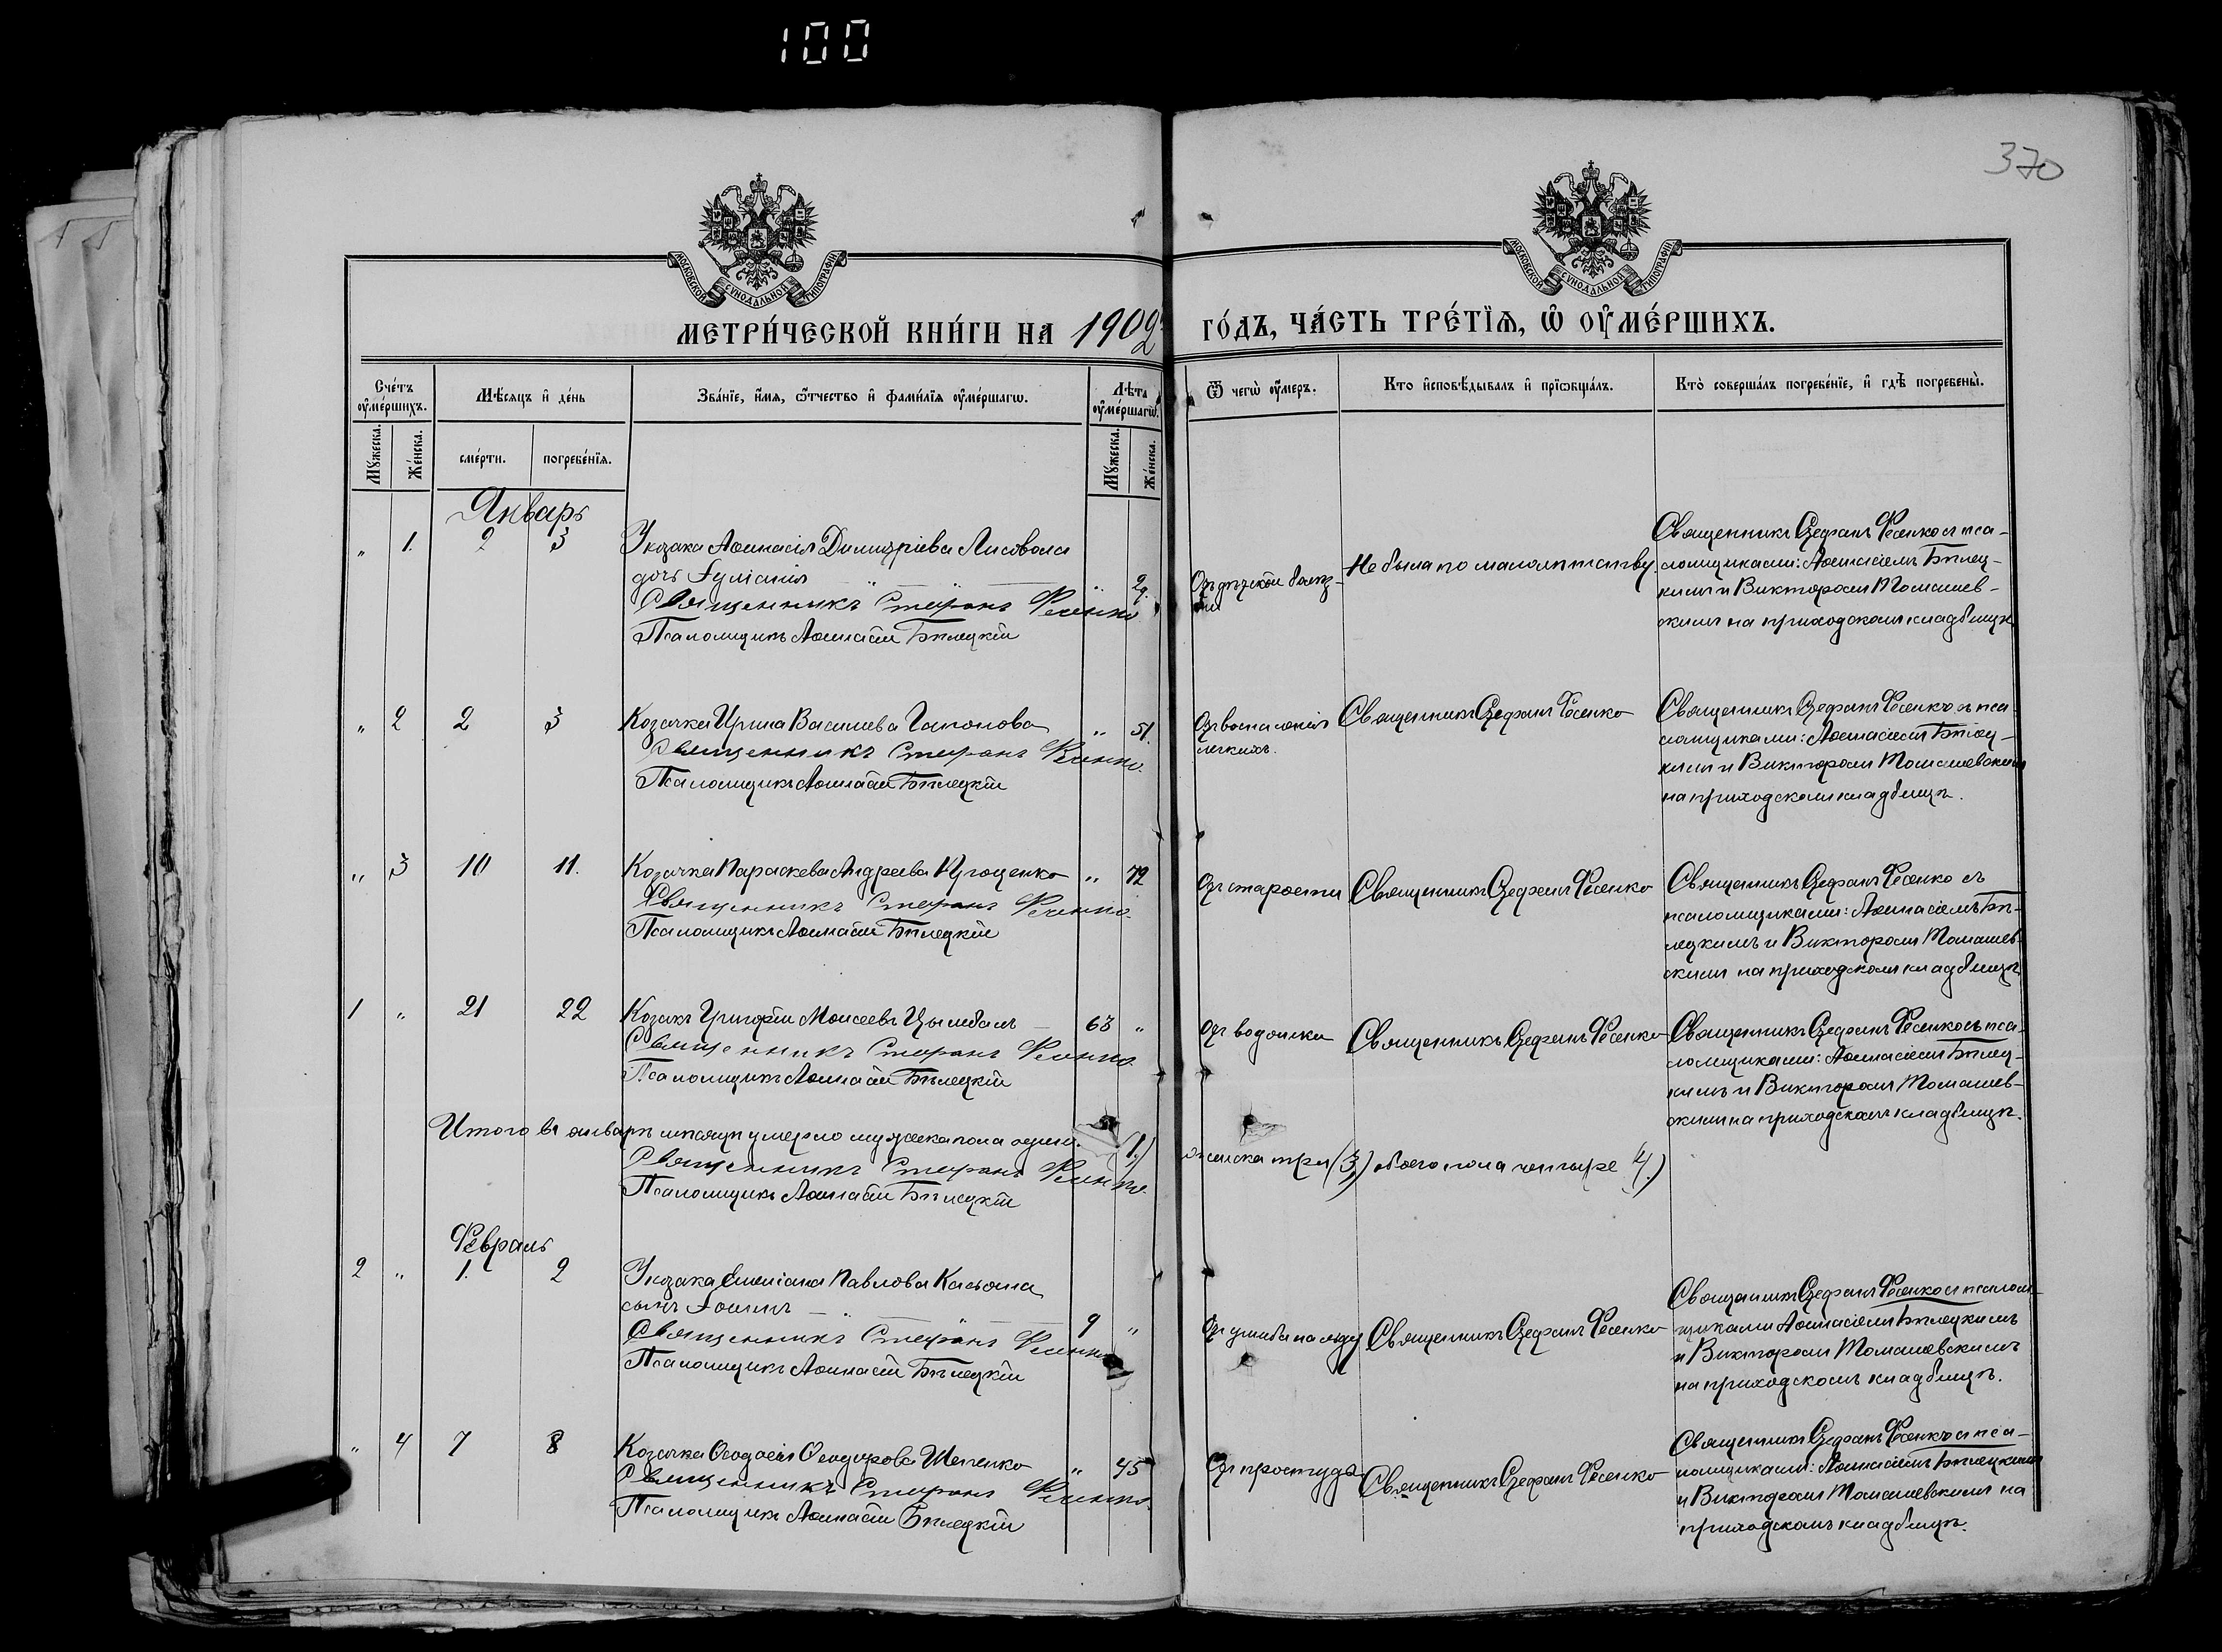 100
370
МОСКОВСКОЙ СѴНОДАЛЬНОЙ ТИПОГРАФІИ
МОСКОВСКОЙ СѴНОДАЛЬНОЙ ТИПОГРАФІИ
МЕТРИ́ЧЕСКОЙ КНИ́ГИ НА 1902 ГО́ДЪ, ЧА́СТЬ ТРЕ́ТЇѦ, Ѡ҆ ОУ҆МЕ́РШИХЪ.
Сче́тъ оу҆ме́ршихъ.
Мѣ́сяцъ и҆ де́нь
Зва́нїе, и҆́мя, ѻ҆́тчество и҆ фами́лїя оу҆ме́ршагѡ.
Лѣ́та оу҆ме́ршагѡ.
Ѿ чегѡ̀ оу҆́меръ.
Кто̀ и҆сповѣ́дывалъ и҆ прїѡбща́лъ.
Кто̀ соверша́лъ погребе́нїе, и҆ гдѣ̀ погребены̀.
Мꙋ́жеска. Же́нска. сме́рти. погребе́нїя. Мꙋ́жеска. Же́нска.
Январь
" 1. 2 3 У козака Аѳанасія Димитріева Лисовола
дочь Іуліанія " 2 г.
Священникъ Стефанъ Фесенко
Псаломщикъ Аѳанасій Бѣлецкій
Отъ дѣтской болѣз-
ни
Не была по малолѣтству.
Священникъ Стефанъ Фесенко съ пса-
ломщиками: Аѳанасіемъ Бѣлец-
кимъ и Викторомъ Томашев-
скимъ на приходскомъ кладбищѣ
" 2 2 3 Козачка Ирина Васильева Гапонова " 51.
Священникъ Стефанъ Фесенко.
Псаломщикъ Аѳанасій Бѣлецкій
Отъ воспаленія
легкихъ.
Священникъ Стефанъ Фесенко
Священникъ Стефанъ Фесенко съ пса
ломщиками: Аѳанасіемъ Бѣлец-
кимъ и Викторомъ Томашевскимъ
на приходскомъ кладбищѣ.
" 3 10 11. Козачка Параскева Андреева Проценко " 72
Священникъ Стефанъ Фесенко.
Псаломщикъ Аѳанасій Бѣлецкій
Отъ старости
Священникъ Стефанъ Фесенко
Священникъ Стефанъ Фесенко съ
псаломщиками: Аѳанасіемъ Бѣ-
лецкимъ и Викторомъ Томашев-
скимъ на приходскомъ кладбищѣ
1 " 21 22 Козакъ Григорій Моисеевъ Цымбалъ 63 "
Священникъ Стефанъ Фесенко.
Псаломщикъ Аѳанасій Бѣлецкій
Отъ водянки
Священникъ Стефанъ Фесенко
Священникъ Стефанъ Фесенко съ пса-
ломщиками: Аѳанасіемъ Бѣлец-
кимъ и Викторомъ Томашев-
скимъ на приходскомъ кладбищѣ.
Итого въ январѣ мѣсяцѣ умерло мужеска пола одинъ (1.) женска три (3,) обоего пола четыре 4.)
Священникъ Стефанъ Фесенко.
Псаломщикъ Аѳанасій Бѣлецкій
Февраль
2 " 1. 2 У козака Емиліана Павлова Касьяна
сынъ Іоаннъ 9 "
Священникъ Стефанъ Фесенко
Псаломщикъ Аѳанасій Бѣлецкій
Отъ ушиба на льду
Священникъ Стефанъ Фесенко
Священникъ Стефанъ Фесенко съ псалом-
щиками Аѳанасіемъ Бѣлецкимъ
и Викторомъ Томашевскимъ
на приходскомъ кладбищѣ.
" 4 7 8 Козачка Ѳеодосія Ѳеодорова Шепенко " 45
Священникъ Стефанъ Фесенко.
Псаломщикъ Аѳанасій Бѣлецкій
Отъ простуды
Священникъ Стефанъ Фесенко
Священникъ Стефанъ Фесенко съ пса-
ломщиками: Аѳанасіемъ Бѣлецкимъ
и Викторомъ Томашевскимъ на
приходскомъ кладбищѣ.